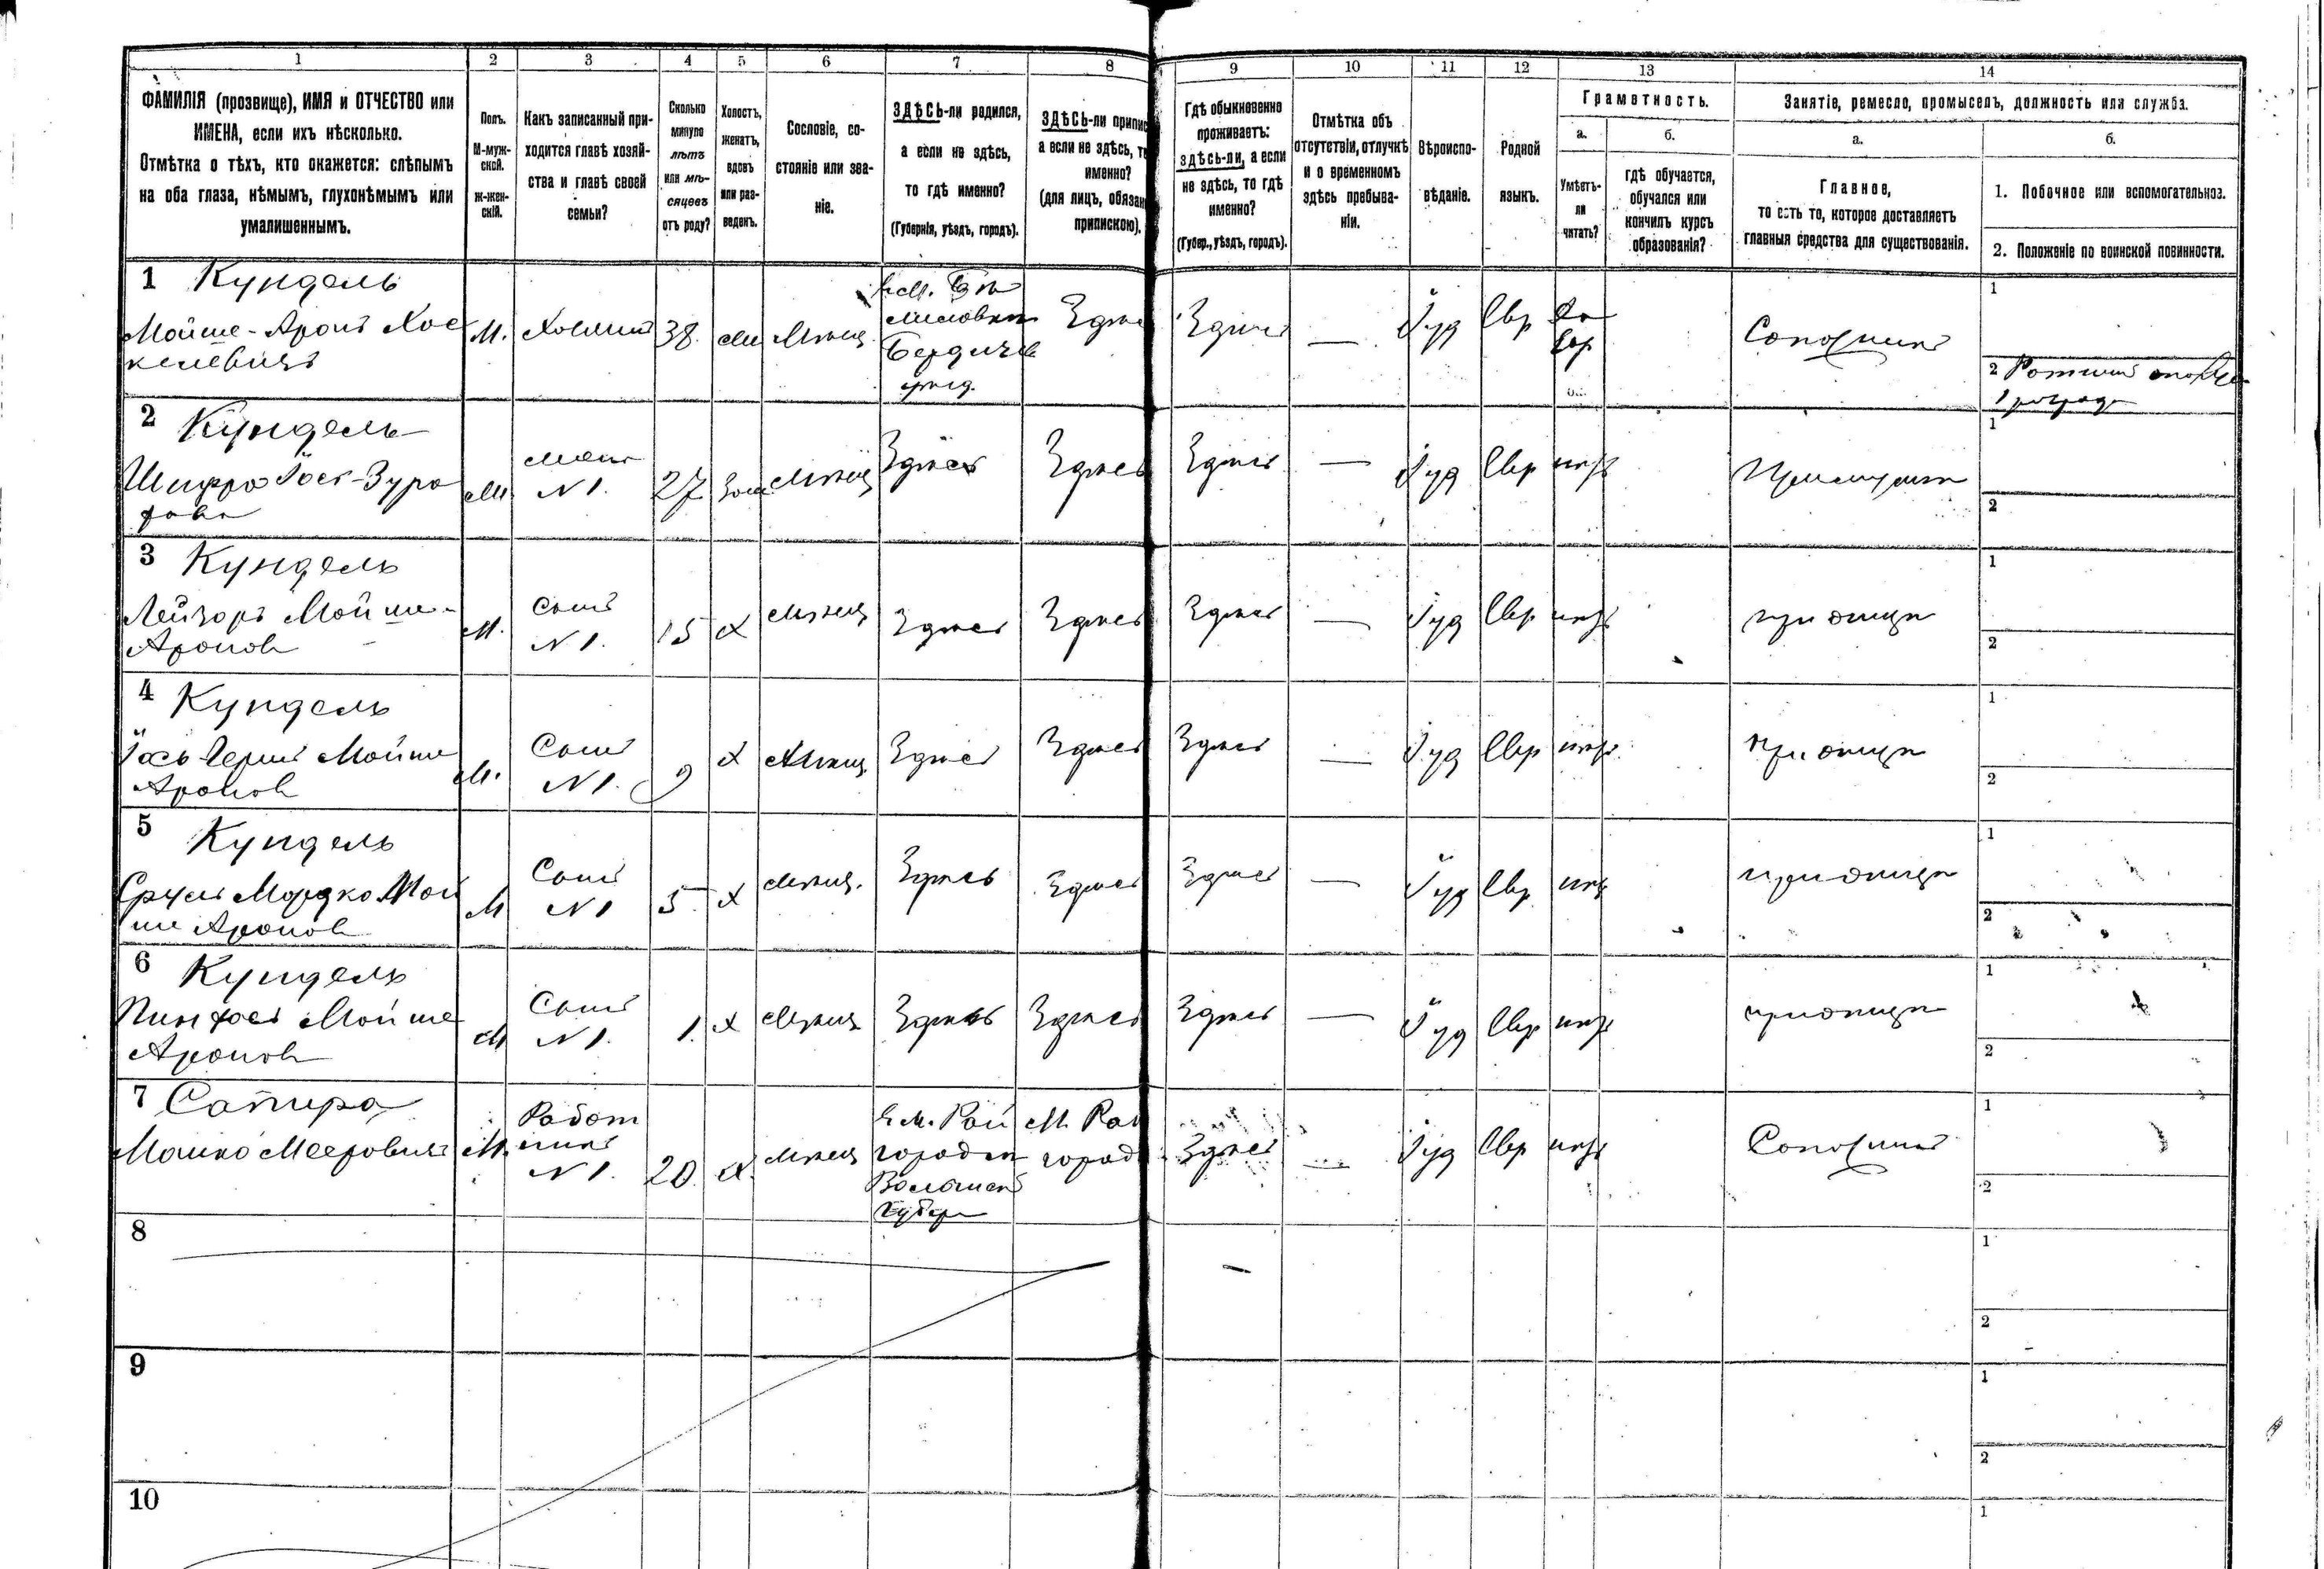 1 2 3 4 5 6 7 8 9 10 11 12 13 14
ФАМИЛІЯ (прозвище), ИМЯ и ОТЧЕСТВО или
ИМЕНА, если ихъ нѣсколько.
Отмѣтка о тѣхъ, кто окажется: слѣпымъ
на оба глаза, нѣмымъ, глухонѣмымъ или
умалишеннымъ.
Полъ.
М-муж-
ской.
Ж-жен-
скій.
Какъ записанный при-
ходится главѣ хозяй-
ства и главѣ своей
семьи?
Сколько
минуло
лѣтъ
или мѣ-
сяцевъ
отъ роду?
Холостъ,
женатъ,
вдовъ
или раз-
веденъ.
Сословіе, со-
стояніе или зва-
ніе.
ЗДѢСЬ-ли родился,
а если не здѣсь,
то гдѣ именно?
(Губернія, уѣздъ, городъ).
ЗДѢСЬ-ли припис
а если не здѣсь, т
именно?
(для лицъ, обязан
припискою).
Гдѣ обыкновенно
проживаетъ:
здѣсь-ли, а если
не здѣсь, то гдѣ
именно?
(Губер., уѣздъ, городъ).
Отмѣтка объ
отсутствіи, отлучкѣ
и о временномъ
здѣсь пребыва-
ніи.
Вѣроиспо-
вѣданіе.
Родной
языкъ.
Грамотность.
а.
Умѣетъ-
ли
читать?
б.
гдѣ обучается,
обучался или
кончилъ курсъ
образованія?
Занятіе, ремесло, промыселъ, должность или служба.
а.
Главное,
то есть то, которое доставляетъ
главныя средства для существованія.
б.
1. Побочное или вспомогательное.
2. Положеніе по воинской повинности.
1 Кундель
Мойше-Аронъ Хос
келевичъ
М. 38.
Бердичев
уѣзд.
Здѣсь Здѣсь — Іуд Евр
Сапожникъ
1
2
2 Кундель
Шифра
жена
N 1.
27 Здѣсь Здѣсь Здѣсь — Іуд Евр
1
2
3 Кундель
Лейзоръ Мойше-
Аронов
М.
Сынъ
N 1.
15 Х Мѣщ Здѣсь Здѣсь Здѣсь — Іуд Евр
1
2
4 Кундель
Герш Мойше
Аронов
М.
Сынъ
N 1.
9 Х Мѣщ. Здѣсь Здѣсь Здѣсь — Іуд Евр
1
2
5 Кундель
Сруль Мордко Мой
ше Аронов
М
Сынъ
N 1
5 Х Мѣщ. Здѣсь Здѣсь Здѣсь — Іуд Евр
1
2
6 Кундель
Пинхосъ Мойше
Аронов
М
Сынъ
N 1.
1. Х Мѣщ Здѣсь Здѣсь Здѣсь — Іуд Евр
1
2
7 Сапира
Мошко Мееровичъ
М.
Работ
никъ
N 1.
20. Х. Мѣщ
В м. Рай
городк
Волынск
губер
М. Рай
город
Здѣсь — Іуд Евр
Сапожникъ
1
2
8
1
2
9
1
2
10
1